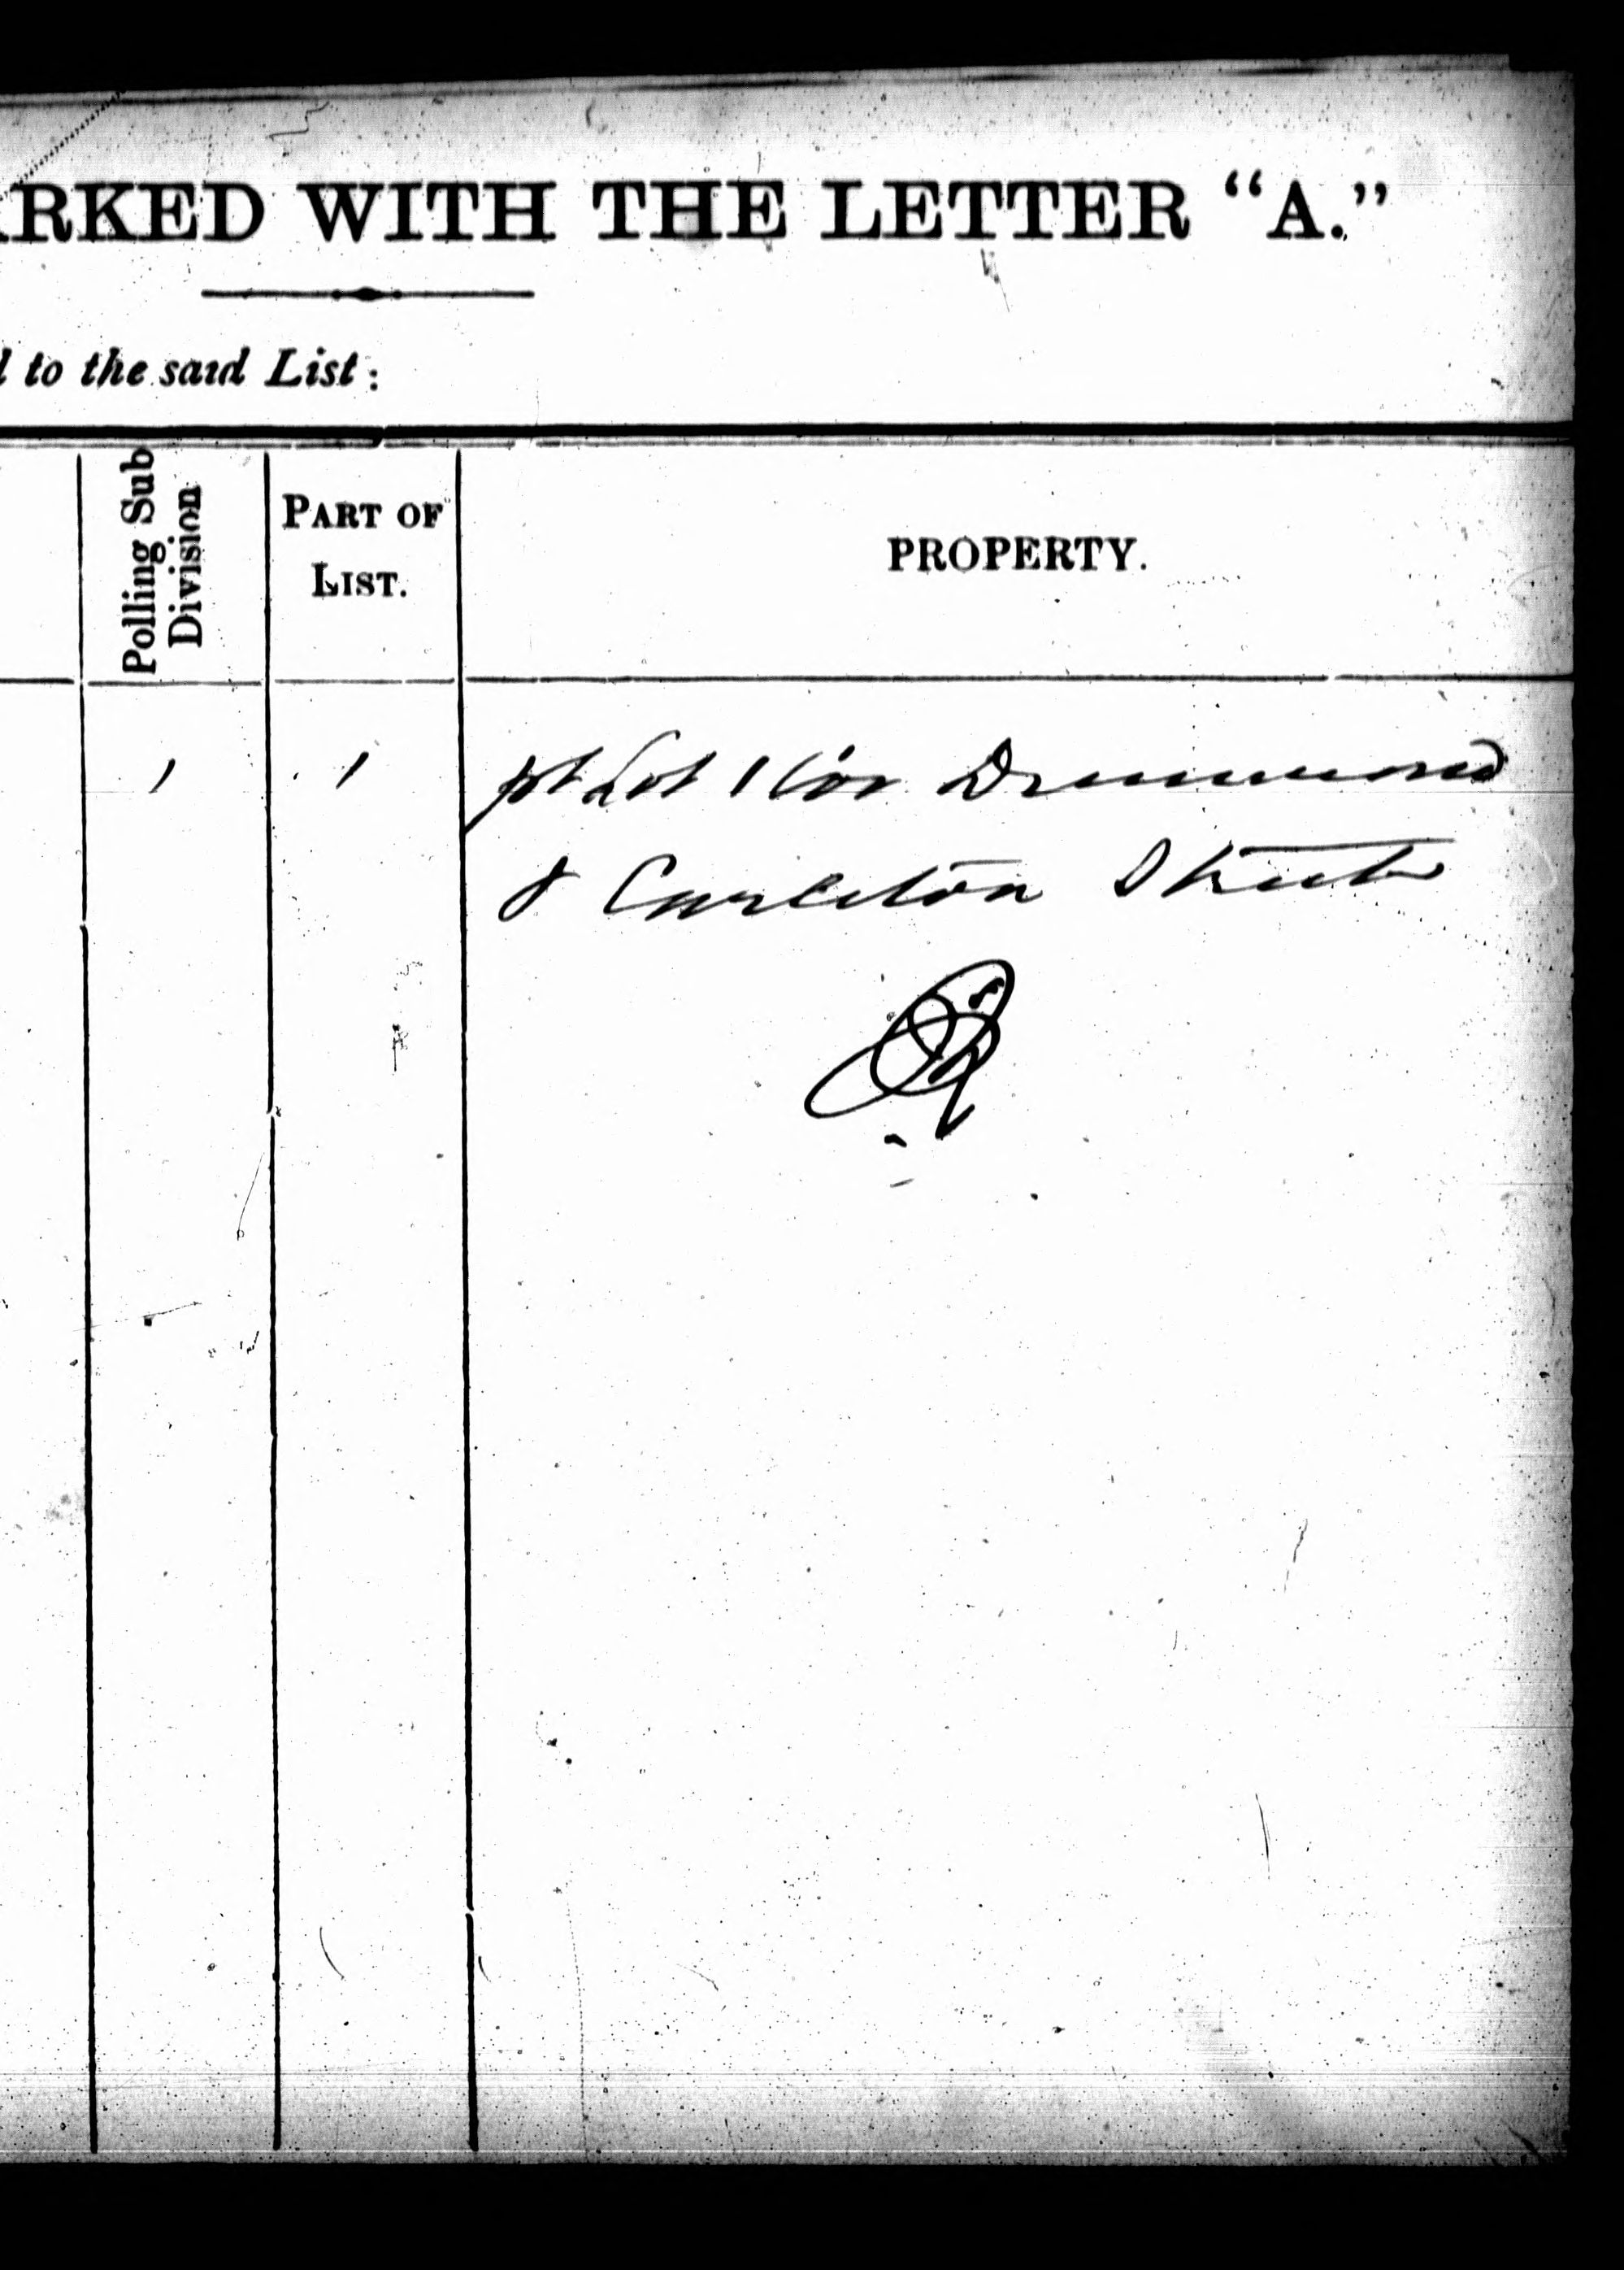 ARKED WITH THE LETTER "A."
d to the said List:
Polling Sub
Division
PART OF
LIST.
PROPERTY.
1 1 pt Lot 1 Cor Drummond
& Carleton Streets